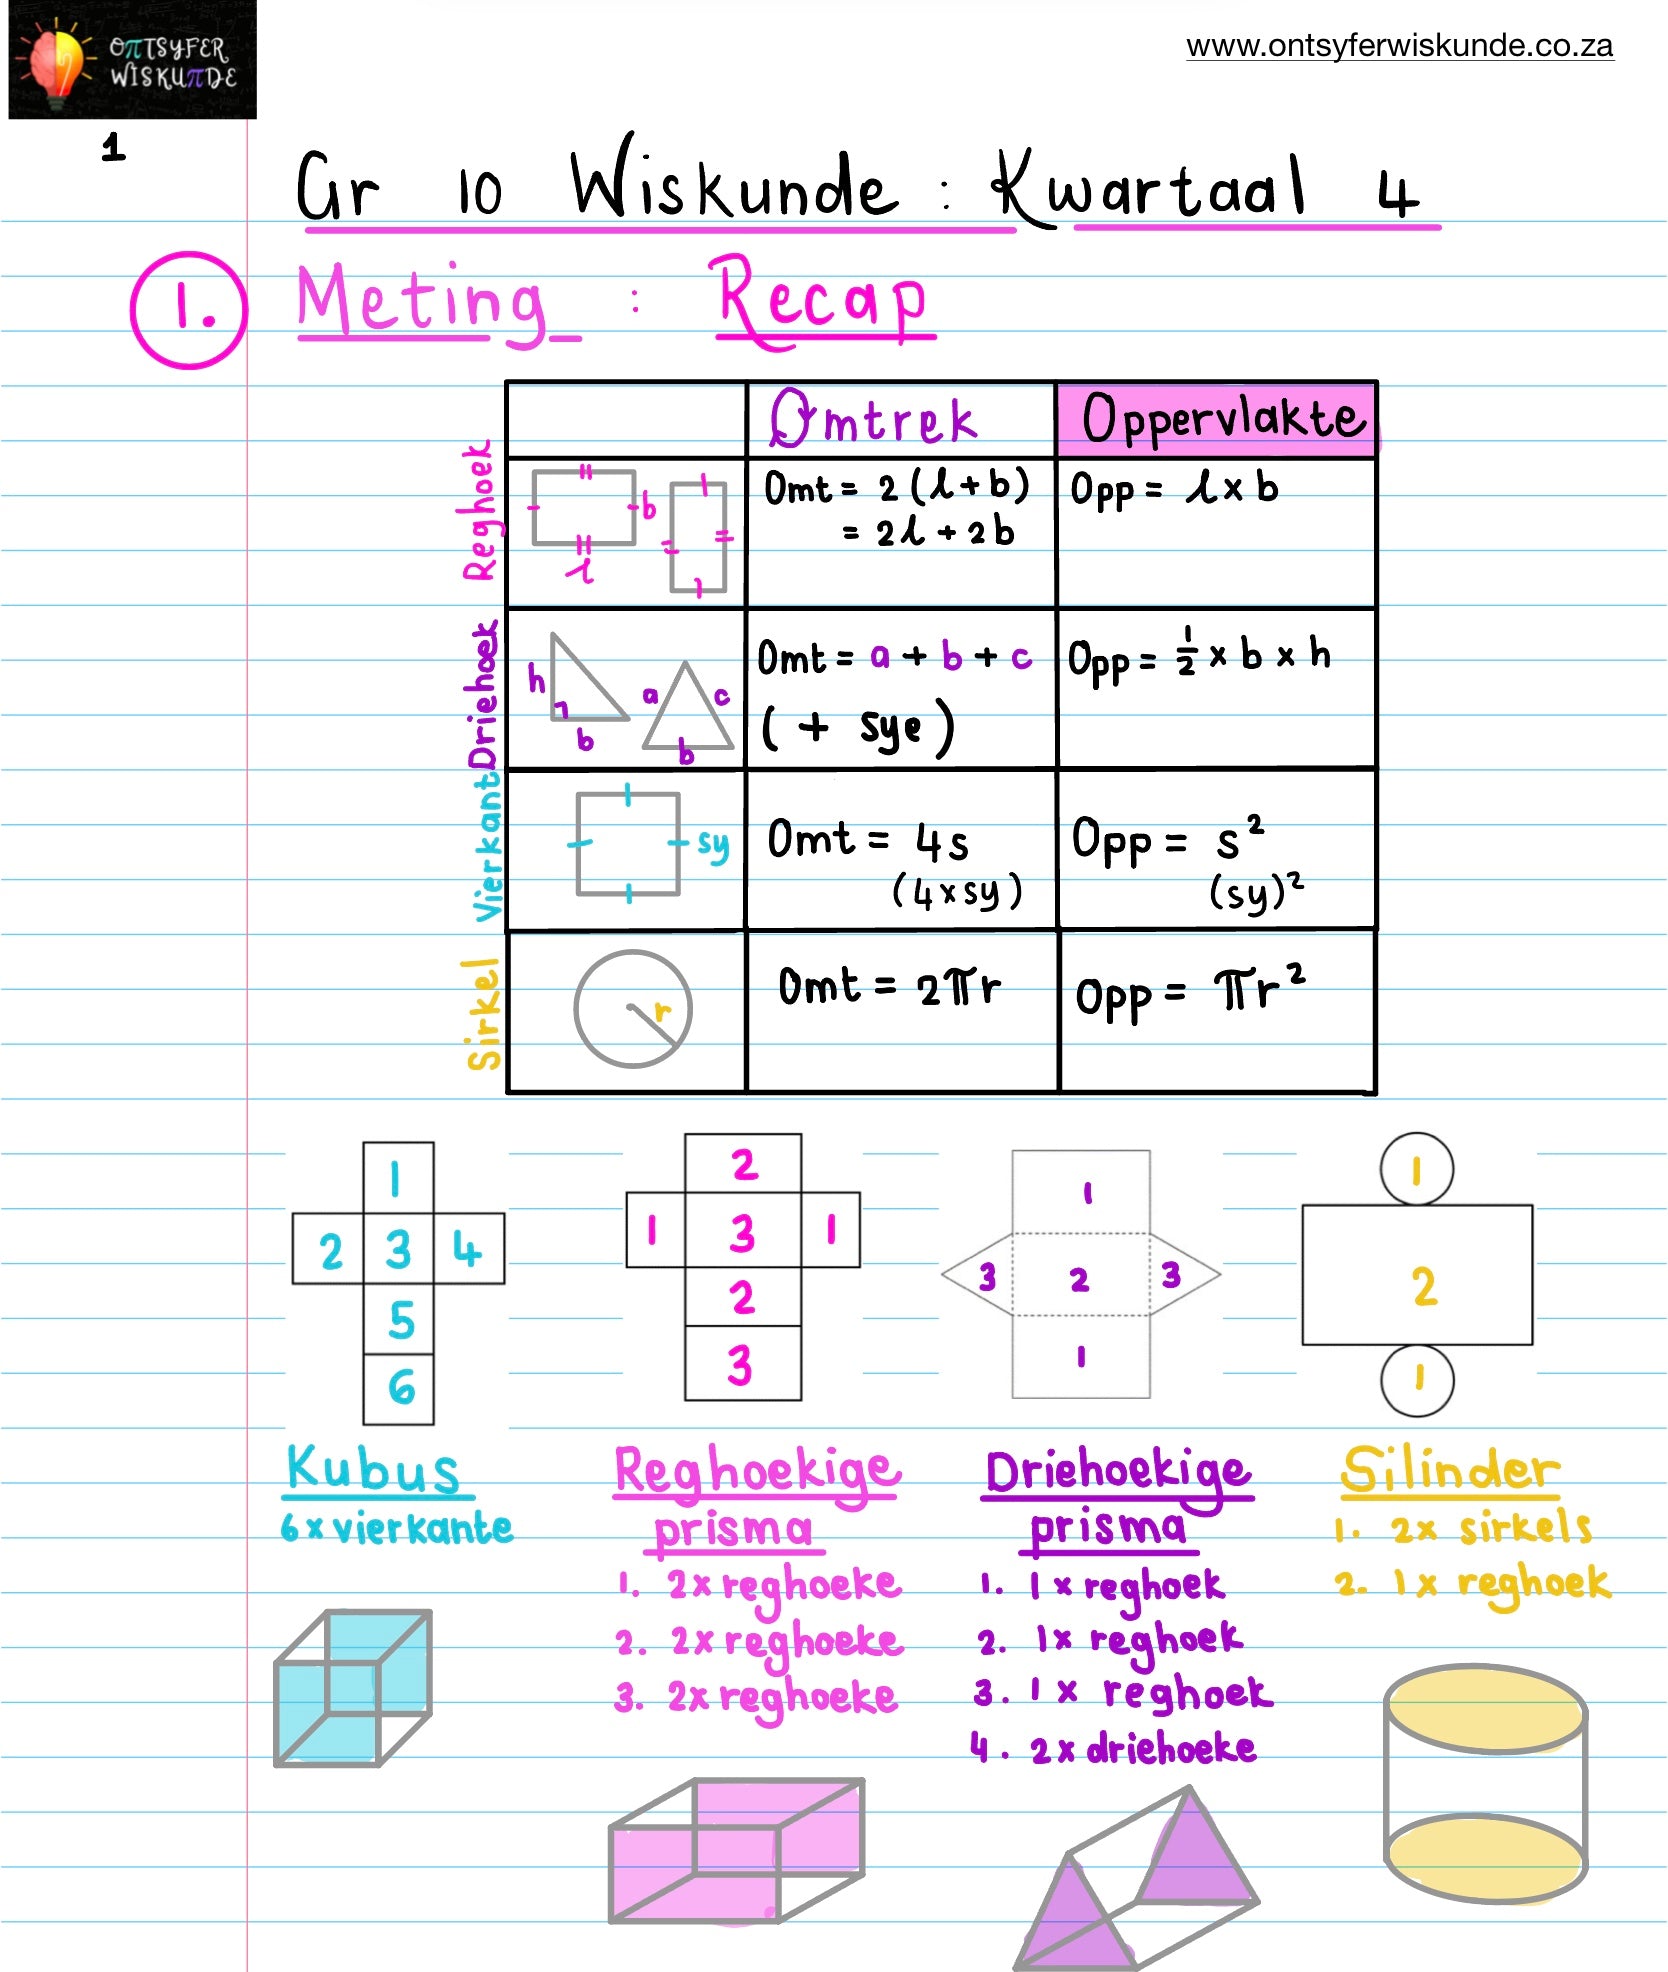 OπTSYFER
WISKUπDE
www.ontsyferwiskunde.co.za
1
Gr 10 Wiskunde : Kwartaal 4
1. Meting : Recap
Omtrek Oppervlakte
Reghoek
b
l
Omt = 2(l+b)
= 2l + 2b
Opp = l x b
Driehoek
h
b
a
c
b
Omt = a + b + c
(+ sye)
Opp = 1/2 x b x h
Vierkant
sy
Omt = 4s
(4xsy)
Opp = s²
(sy)²
Sirkel
r
Omt = 2πr
Opp = πr²
1
2 3 4
5
6
2
1 3 1
2
3
1
3 2 3
1
1
2
1
Kubus
6x vierkante
Reghoekige
prisma
1. 2x reghoeke
2. 2x reghoeke
3. 2x reghoeke
Driehoekige
prisma
1. 1x reghoek
2. 1x reghoek
3. 1x reghoek
4. 2x driehoeke
Silinder
1. 2x sirkels
2. 1x reghoek